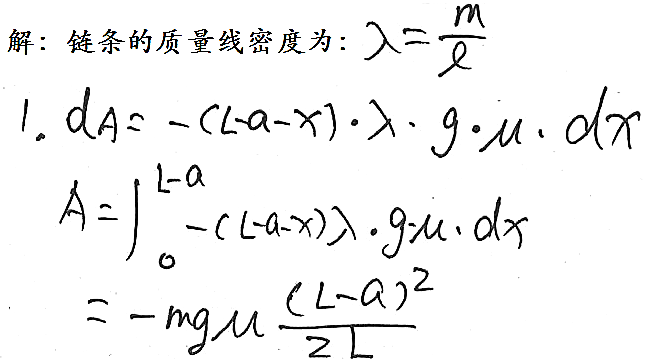 解：链条的质量线密度为：λ = m/l
1. dA = -(L-a-x)·λ·g·μ·dx
A = ∫₀^{L-a} -(L-a-x)λ·g·μ·dx
= -mgμ (L-a)²/2L